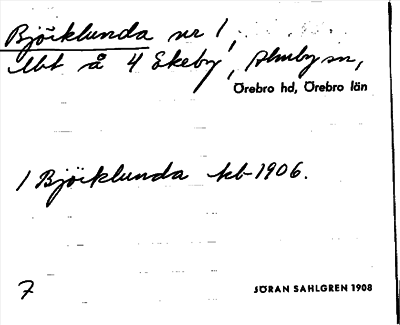 Björklunda nr 1,
lbt å 4 Ekeby, Almby sn,
Örebro hd, Örebro län
1 Björklunda kb 1906.
7
JÖRAN SAHLGREN 1908